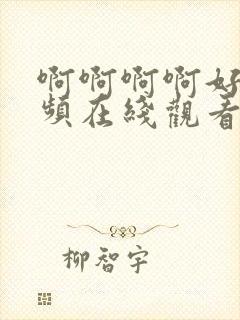 啊啊啊啊好
頻在綫觀看
柳智宇